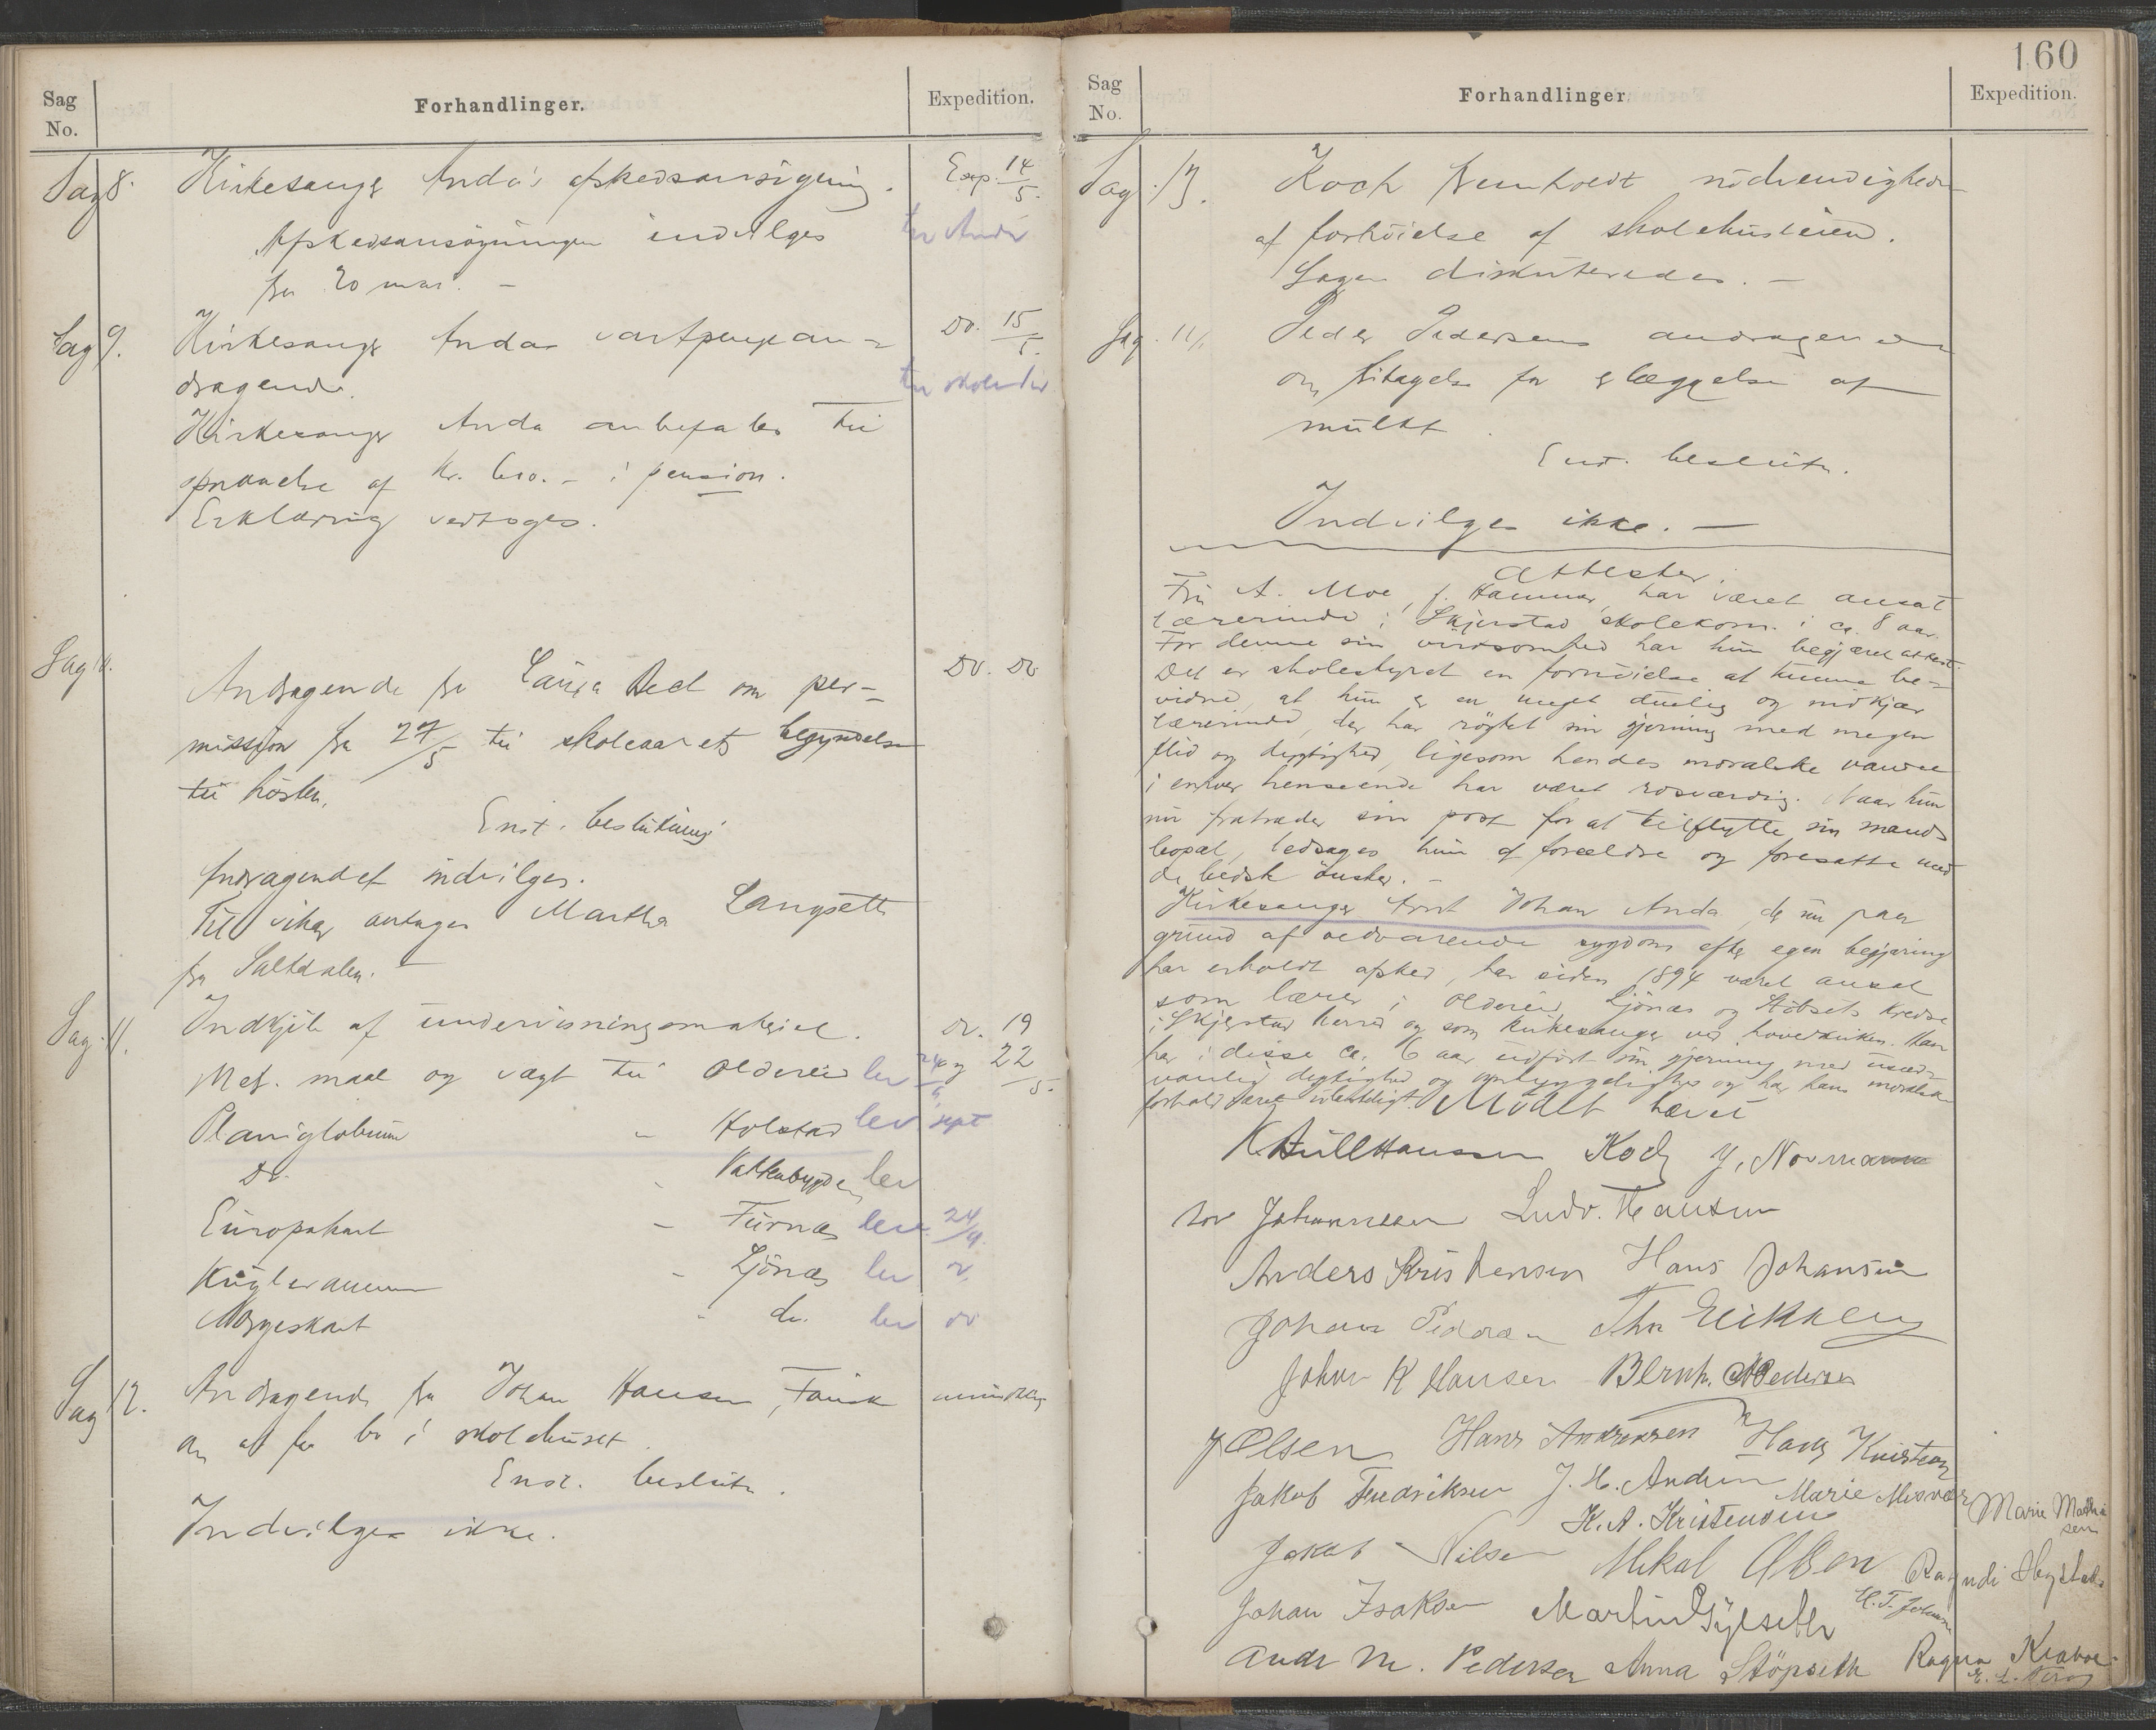 Sag No. Forhandlinger. Expedition.
Sag 8. Kirkesanger Anda's afskedsansøgning. Exp. 14/5.
Afskedsansøgningen indvilges til Anda
fra 20 mai. –
Sag 9. Kirkesanger Andas vartpengean= Do. 15/5.
dragende.
Kirkesanger Anda anbefales til
opnaaelse af Kr. 600.- i pension.
Erklæring vedtoges.
Sag 10. Andragende fra Laura Bed om per= Do. Do.
mission fra 27/5 til skoleaarets begyndelse
til høsten.
Enst. beslutning
Andragendet indvilges.
Til vikar antages Martha Langseth
fra Saltdalen. –
Sag 11. Indkjøb af undervisningsmateriel. Do. 19
Met. maal og vægt til Oldereid lev og 22/5.
Planiglobium - Holstad lev sept
Do. - Valkabygden lev
Europakart - Furnæs lev 24/9.
Kugleramme - Ljønæs lev
Norgeskart - do. lev do
Sag 12. Andragende fra Johan Hansen, Fauske mundtlig
om at faa bo i skolehuset.
Enst. beslutn.
Indvilges ikke.
160
Sag No. Forhandlinger. Expedition.
Sag 13. Koch fremholdt nødvendigheden
af forhøielse af skolehusleien.
Sagen diskuteredes. –
Sag 14. Peder Pedersens andragende
om fritagelse for erlæggelse af
mulkt.
Enst. beslutn.
Indvilges ikke. –
Attester.
Fru A. Moe, f. Hammer, har været ansat
lærerinde i Skjerstad skolekom. i ca. 8 aar.
For denne sin virksomhed har hun begjæret attest.
Det er skolestyret en fornøielse at kunne be=
vidne, at hun er en meget duelig og nidkjær
lærerinde, der har røgtet sin gjerning med megen
flid og dygtighed, ligesom hendes moralske vandel
i enhver henseende har været rosværdig. Naar hun
nu fratræder sin post for at tilflytte sin mands
bopæl, ledsages hun af forældre og foresatte med
de bedste ønsker. –
Kirkesanger Arnt Johan Anda, der nu paa
grund af vedvarende sygdom efter egen begjæring
har erholdt afsked, har siden 1894 været ansat
som lærer i Oldereid, Ljønæs og Støbsets kredse
i Skjerstad herred og som kirkesanger ved hovedkirken. Han
har i disse ca. 6 aar udført sin gjerning med usæd=
vanlig dygtighed og og har hans moralske
forhold været uladeligt. Mødet hævet
K. Bull Hansen Koch J. Normann
Johannesen Ludv. Hansen
Anders Kristensen Hans Johansen
Johan Pedersen Ths Eickkeng
Johan K Hansen Bernh. Pedersen
J Olsen Hans Andreasen Hans Knutsen
Jakob Fredriksen J. H. Andersen Marie Misvær Marie Mathisen
K. A. Kristensen
Jakob Nilsen Mikal Olsen Ragndi
Johan Isaksen Martin Gylseth H. T. Johansen
Andr M. Pedersen Anna Støpseth Ragna